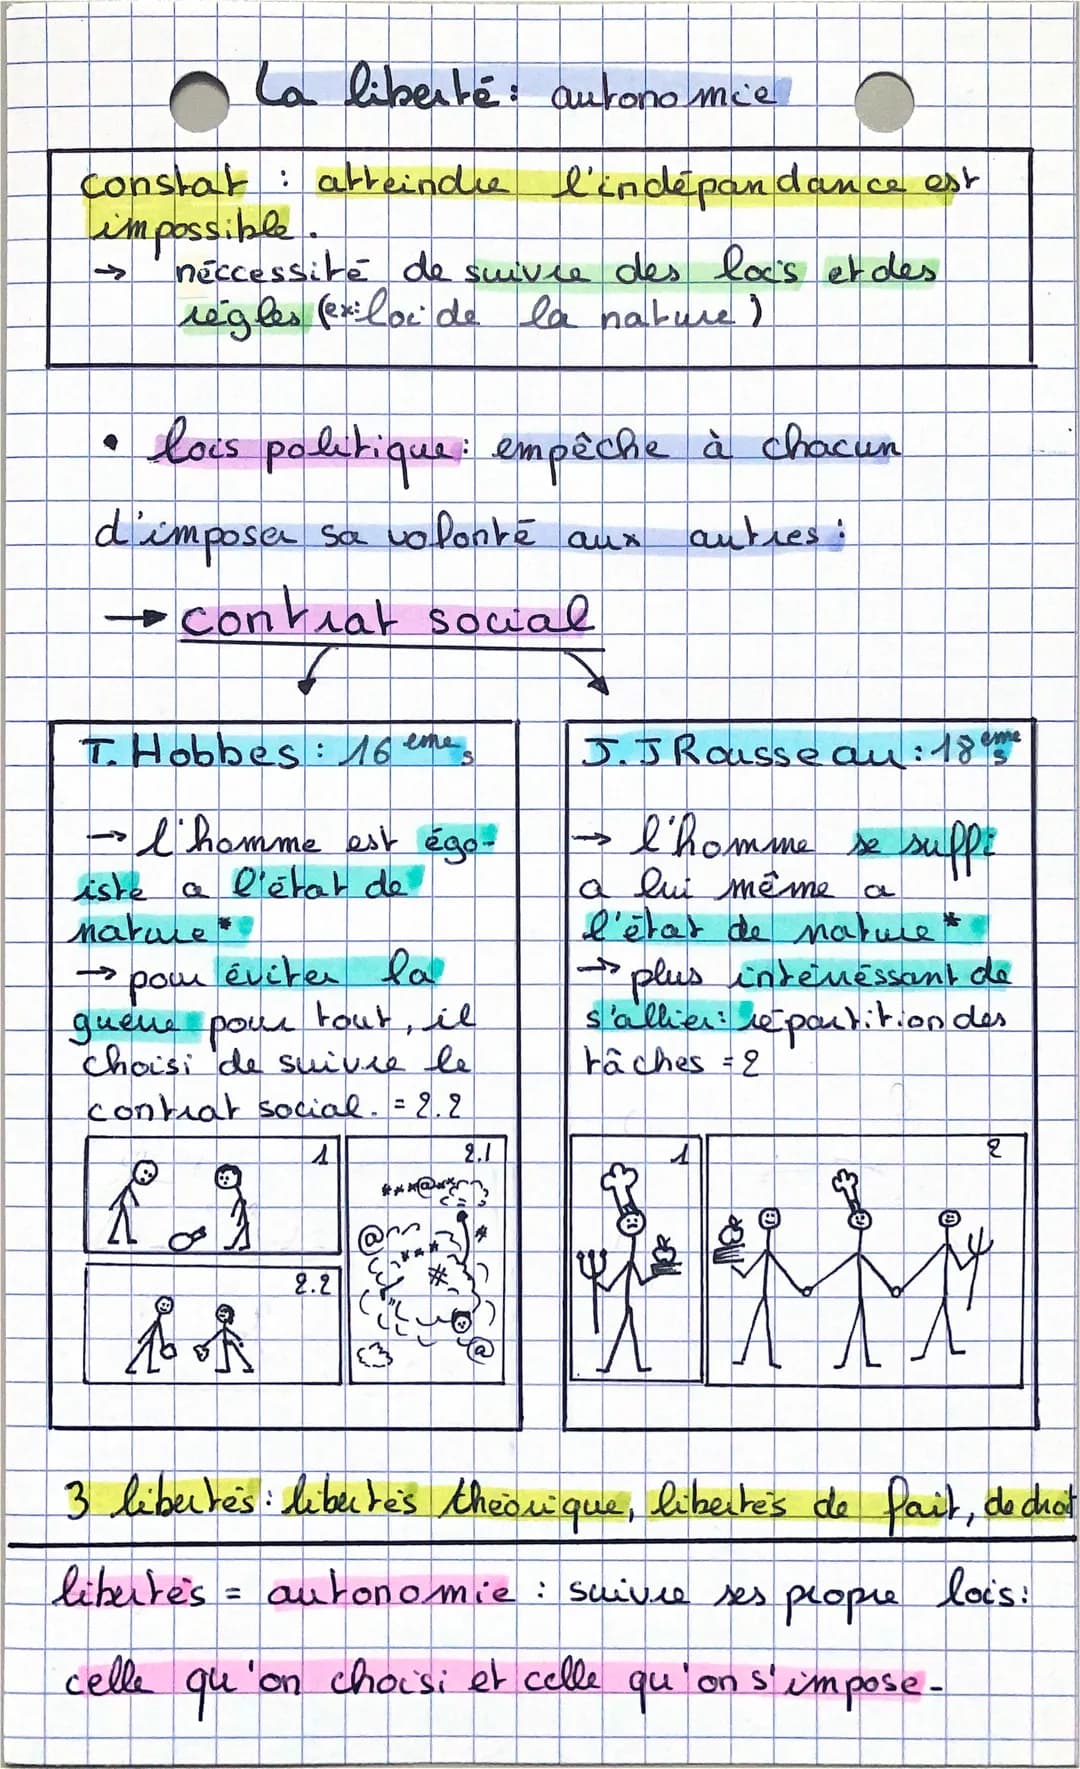 La liberté : autonomie
constat : atteindre l'indépandance est
impossible.
→ néccessité de suivre des lois et des
régles (ex: loi de la nature)
• lois politique: empêche à chacun
d'imposer sa volonté aux autres :
→ contrat social
T. Hobbes : 16 eme s
→ l'homme est égo-
iste a l'état de
nature*
→ pour éviter la
guerre pour tout, il
choisi de suivre le
contrat social. = 2.2
1
2.1
***@**
@
***
#
*
@
2.2
J. J Rousseau : 18 eme s
→ l'homme se suffi
a lui même a
l'état de nature*
→ plus intéréssant de
s'allier: répartition des
tâches = 2
1
2
3 libertés : libertés théorique, libertés de fait, de droit
libertés = autonomie : suivre ses propre lois:
celle qu'on choisi et celle qu'on s'impose-